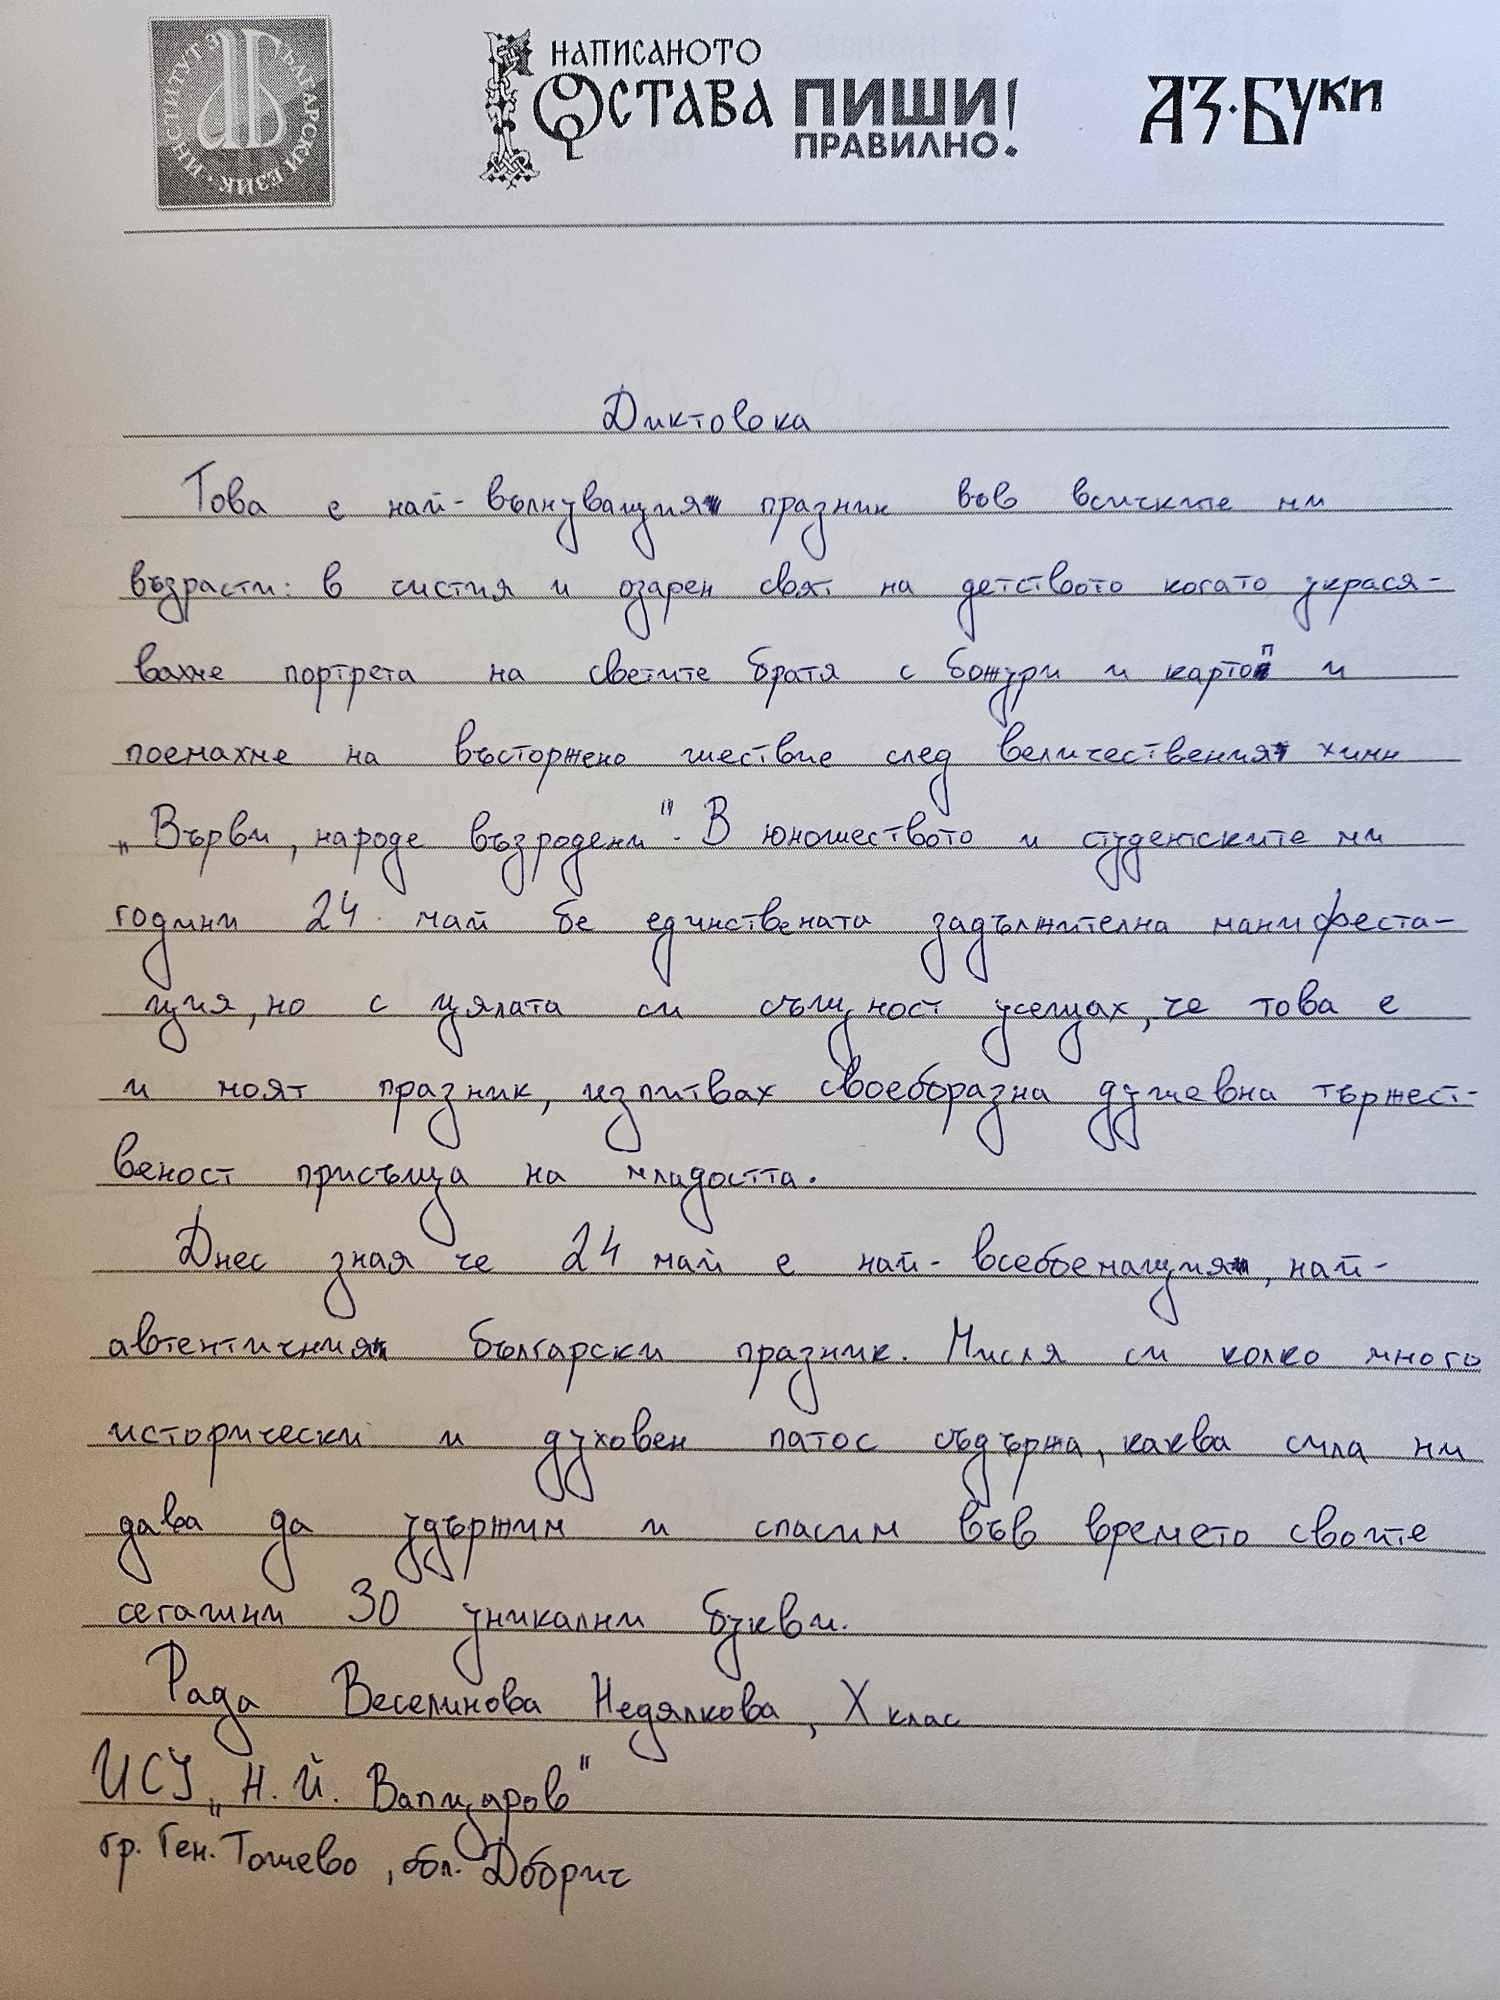 ИНСТИТУТ ЗА БЪЛГАРСКИ ЕЗИК
НАПИСАНОТО
ОСТАВА ПИШИ
ПРАВИЛНО!
АЗ·БУКИ
Диктовка
Това е най-вълнуващия празник във всичките ни
възрасти: в чистия и озарен свят на детството когато украся-
вахме портрета на светите братя с божури и картоп и
поемахме на въсторжено шествие след величествения химн
„Върви, народе възродени". В юношеството и студентските ми
години 24 май бе единствената задължителна манифеста-
ция, но с цялата си същност усещах, че това е
и моят празник, изпитвах своеобразна душевна тържест-
веност присъща на младостта.
Днес зная че 24 май е най-всеобемащия, най-
автентичния български празник. Мисля си колко много
исторически и духовен патос съдържа, каква сила ни
дава да удържим и спасим във времето своите
сегашни 30 уникални букви.
Рада Веселинова Недялкова, X клас
ИСУ „Н. Й. Вапцаров"
гр. Ген. Тошево, обл. Добрич